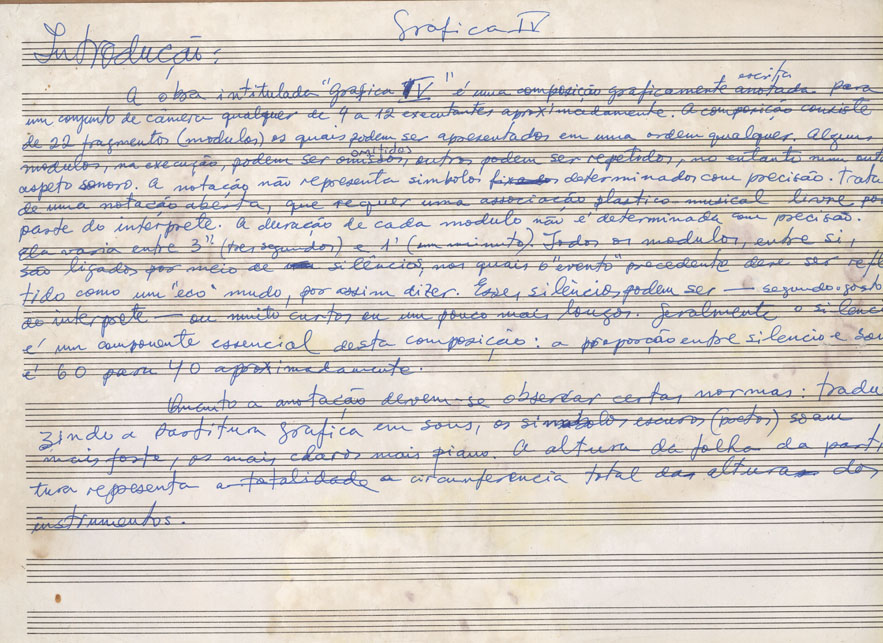 Gráfica IV
Introdução:
A obra intitulada "Gráfica IV" é uma composição graficamente anotada escrita para
um conjunto de câmera qualquer de 9 a 12 executantes aproximadamente. A composição consiste
de 22 fragmentos (modulos) os quais podem ser apresentados em uma ordem qualquer. Alguns
modulos, na execução, podem ser omitidos, outros podem ser repetidos, no entanto num
aspeto sonoro. A notação não representa simbolos fixados determinados com precisão. Trata
de uma notação aberta, que requer uma associação plastico-musical livre por
parte do intérprete. A duração de cada modulo não é determinada com precisão.
Ela varia entre 3" (tres segundos) e 1' (um minuto). Todos os modulos, entre si,
são ligados por meio de silêncios, nos quais o "evento" precedente deve ser refle
tido como um "eco" mudo, por assim dizer. Esses silêncios podem ser — segundo gosto
do intérprete — ou muito curtos ou um pouco mais longos. Geralmente o silenci
é um componente essencial desta composição: a proporção entre silencio e som
é 60 para 40 aproximadamente.
Quanto a anotação devem-se observar certas normas: tradu
zindo a partitura gráfica em sons, os simbolos escuros (pretos) soam
mais forte, os mais claros mais piano. A altura da folha da parti
tura representa a totalidade a circunferencia total das alturas dos
instrumentos.